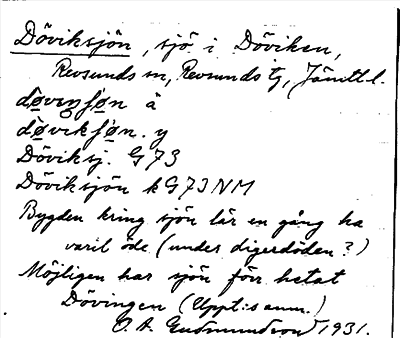 Döviksjön, sjö i Döviken,
Revsunds sn, Revsunds tg, Jämtl l.
Döviksj. G73
Döviksjön kG73NM
Bygden kring sjön lär en gång ha
varit öde (under digerdöden?)
Möjligen har sjön förr hetat
Dövingen (Uppt:s anm.)
O. A. Gudmundsson 1931.